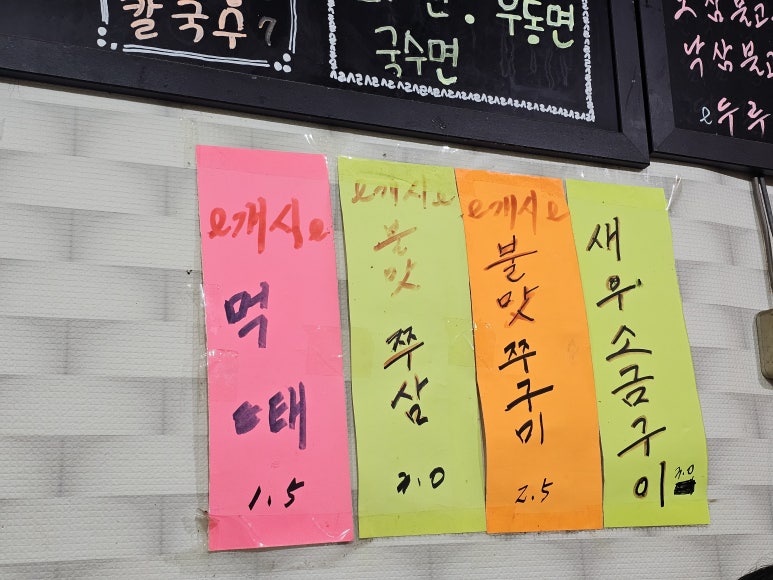 칼국수 7
우동면
국수면
낙삼불고
누룽
개시
먹
태
1.5
개시
불
맛
쭈
삼
3.0
개시
불
맛
쭈
구
미
2.5
새
우
소
금
구
이
3.0